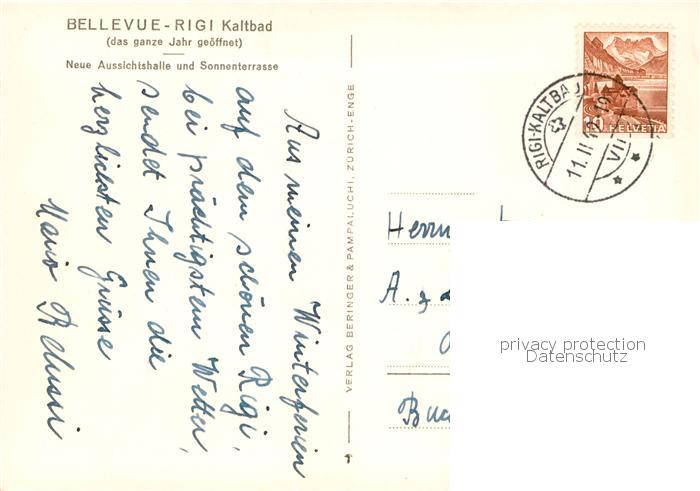 BELLEVUE - RIGI Kaltbad
(das ganze Jahr geöffnet)
Neue Aussichtshalle und Sonnenterrasse
Aus meinen Winterferien
auf dem schönen Rigi,
bei prächtigstem Wetter,
sendet Ihnen die
herzlichsten Grüsse
VERLAG BERINGER & PAMPALUCHI, ZÜRICH-ENGE
RIGI-KALTBAD
11. II
VII
10 HELVETIA
Herrn
A.
privacy protection
Datenschutz